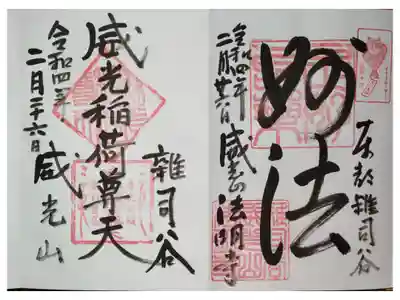 東都雜司谷
妙法
令和四年
二月廿六日
威光山法明寺
雜司谷
威光稲荷尊天
令和四年
二月二十六日
威光山